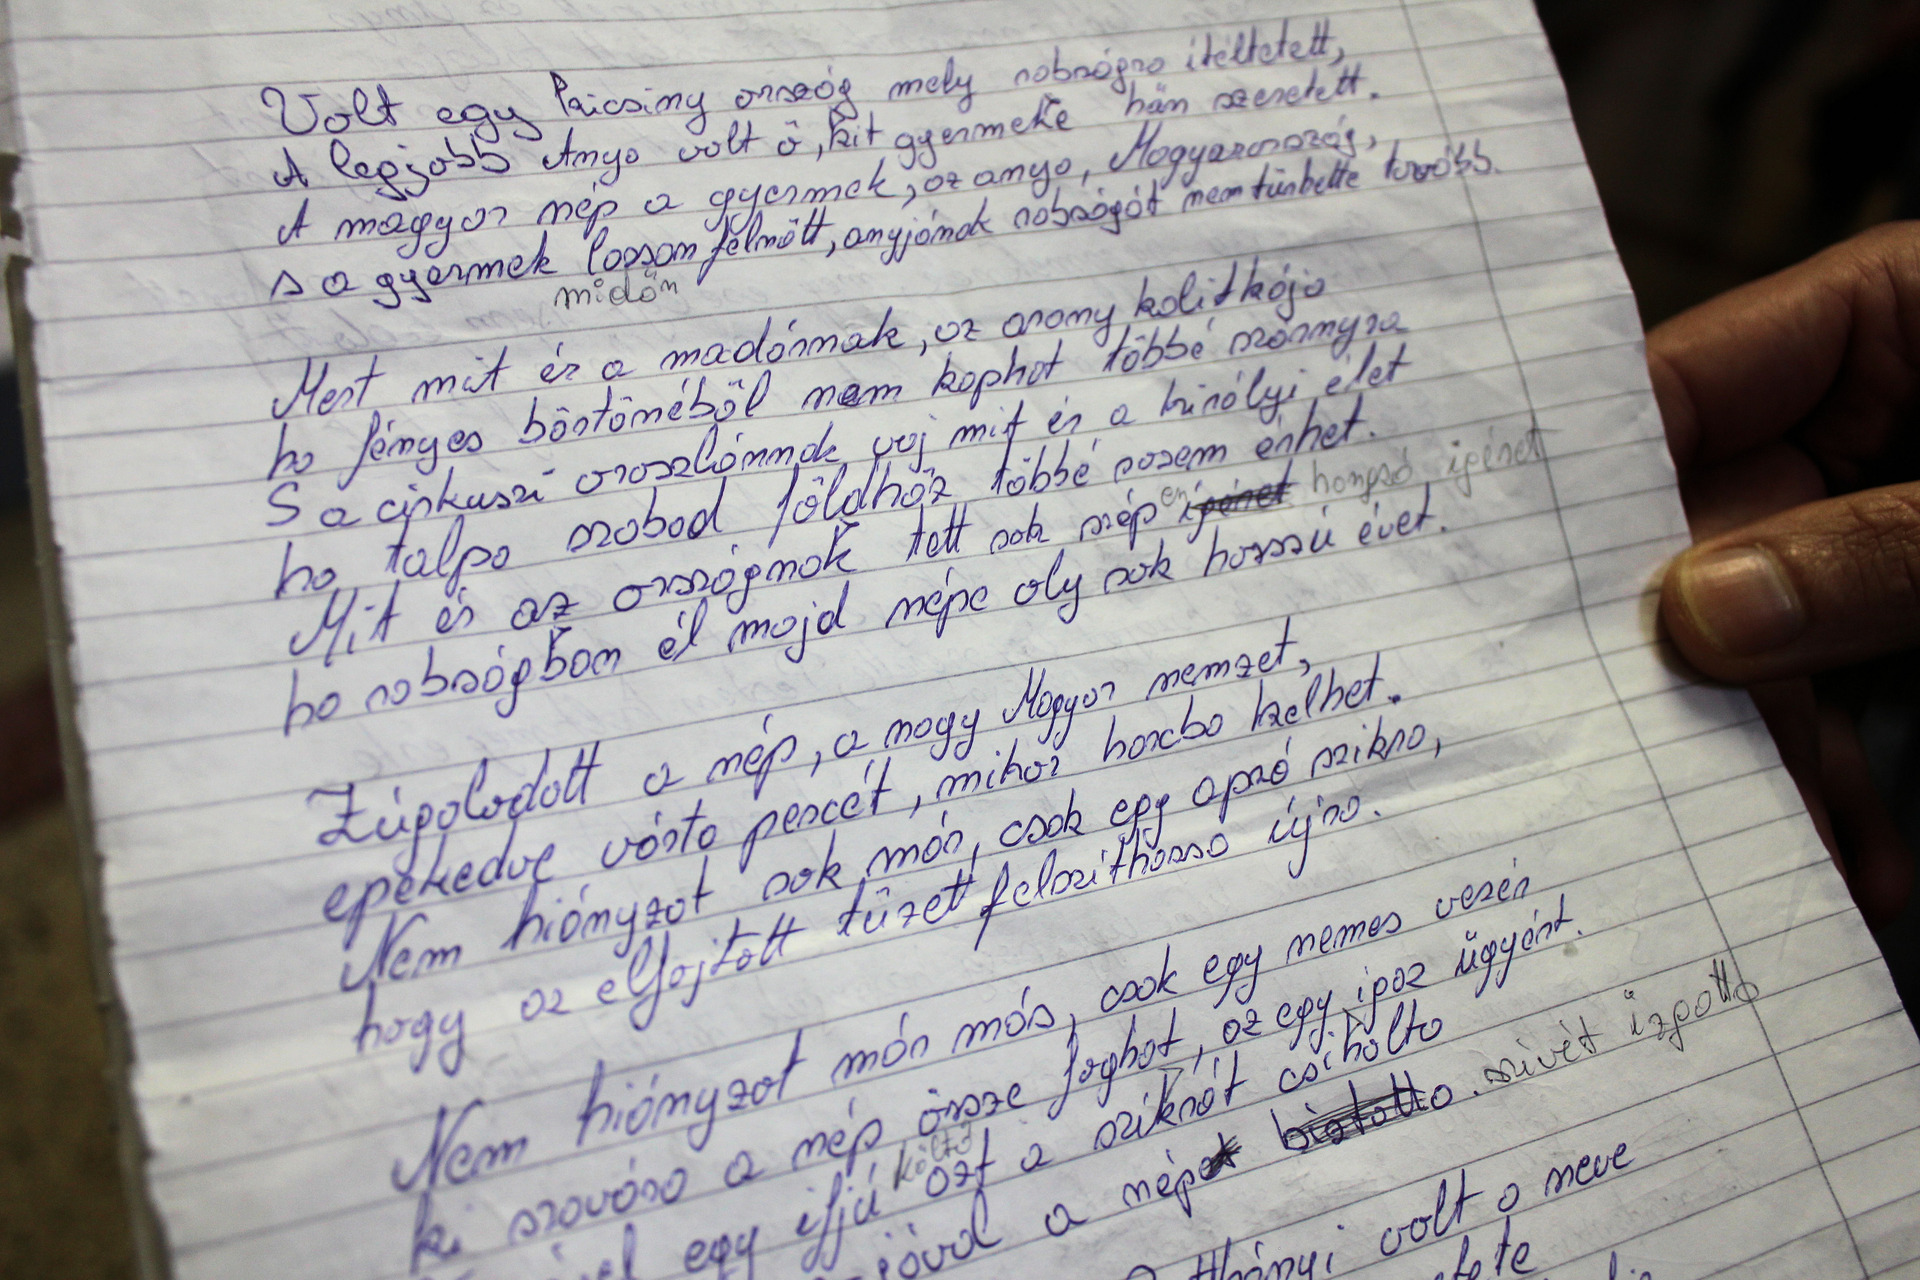 Volt egy kicsiny ország mely rabságra ítéltetett,
A legjobb Anya volt ő, kit gyermeke hűn szeretett.
A magyar nép a gyermek, az anya, Magyarország,
s a gyermek lassan felnőtt, anyjának rabságát nem tűrhette tovább.
midőn
Mert mit ér a madárnak, az arany kalitkája
ha fényes börtönéből nem kaphat többé szárnyra
S a cirkuszi oroszlánnak vaj mit ér a királyi élet
ha talpa szabad földhöz többé sosem érhet.
Mit ér az országnak tett sok szép er ígéret hangzó igéret
ha rabságban él majd népe oly sok hosszú évet.
Zúgolodott a nép, a nagy Magyar nemzet,
epekedve várta percét, mikor harcba kelhet.
Nem hiányzot sok már, csak egy apró szikra,
hogy az elfojtott tüzett felszithassa újra.
Nem hiányzot már más, csak egy nemes vezér
ki szavára a nép össze foghat, az egy igaz ügyért.
egy ifjú költő azt a szikrát csiholta
a népet biztatta. szivét izgatta
volt a neve